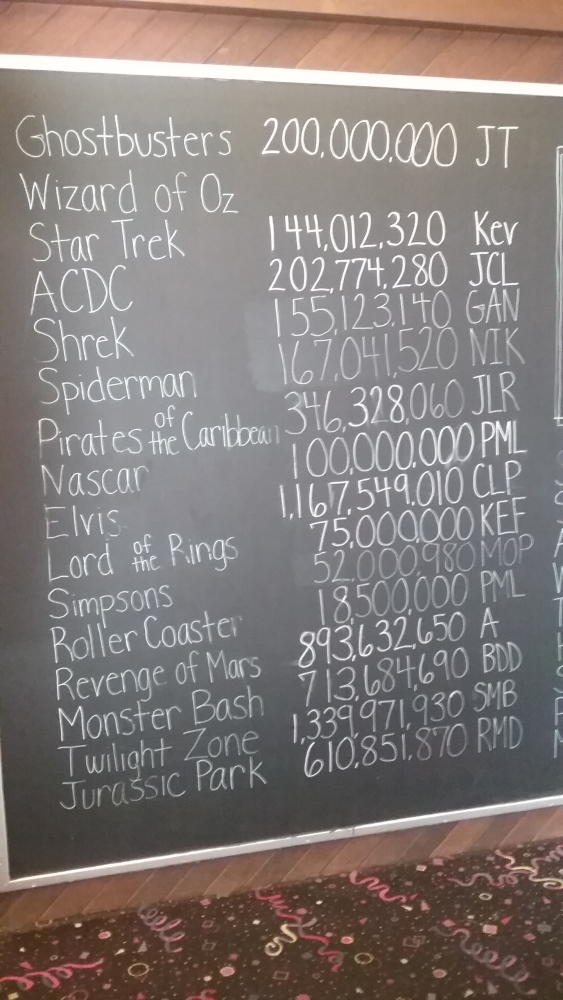 Ghostbusters 200,000,000 JT
Wizard of Oz
Star Trek 144,012,320 Kev
ACDC 202,774,280 JCL
Shrek 155,123,140 GAN
Spiderman 167,041,520 NIK
Pirates of the Caribbean 346,328,060 JLR
Nascar 100,000,000 PML
Elvis 1,167,549,010 CLP
Lord of the Rings 75,000,000 KEF
Simpsons 52,000,980 MOP
Roller Coaster 18,500,000 PML
Revenge of Mars 893,632,650 A
Monster Bash 713,684,690 BDD
Twilight Zone 1,339,971,930 SMB
Jurassic Park 610,851,870 RMD